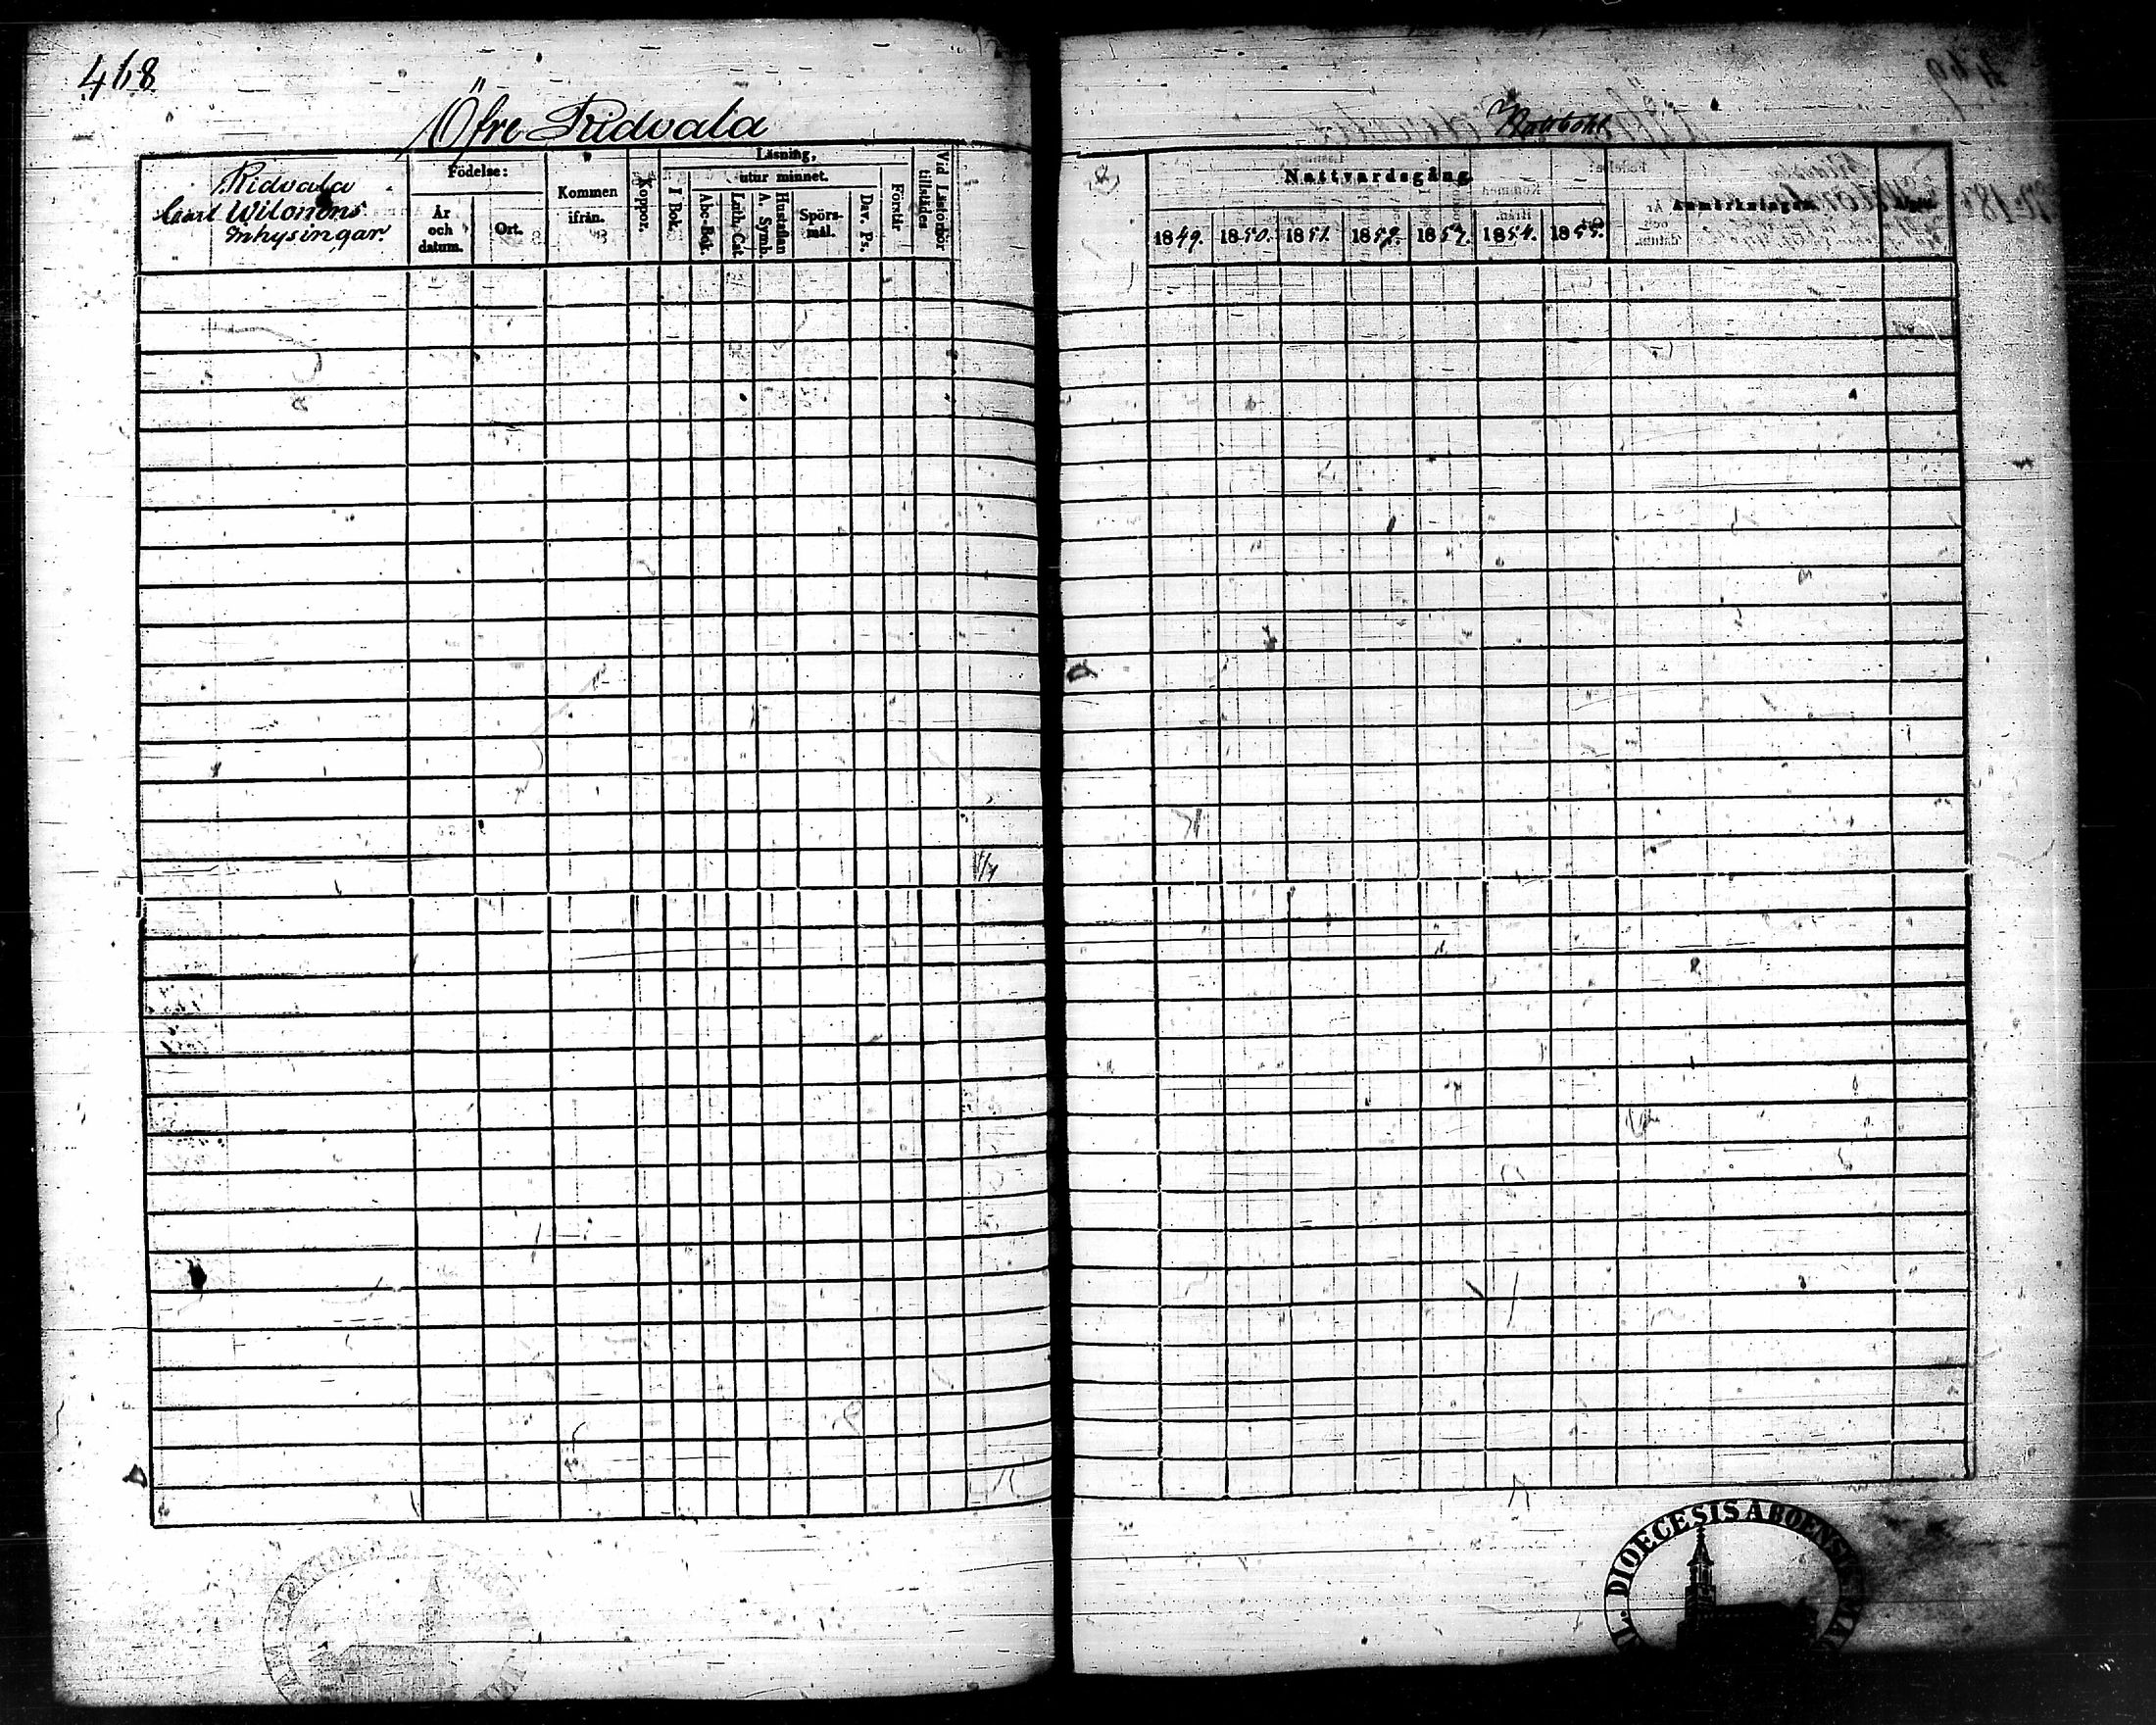 468
Öfre Ridvala
Ridvala
Caarl Wilonens
Inhysingar.
Födelse:
År och datum.
Ort.
Kommen ifrån.
Koppor.
Läsning,
I Bok.
utur minnet.
Abc-Bok.
Luth. Cat.
Hustaflan A. Symb.
Spörsmål.
Dav. Ps.
Förstår
Vid Läsförhör tillstädes
Nattvardsgång
1849. 1850. 1851. 1852. 1853. 1854. 1855.
Anmärkningar.
DIOECESIS ABOENSIS